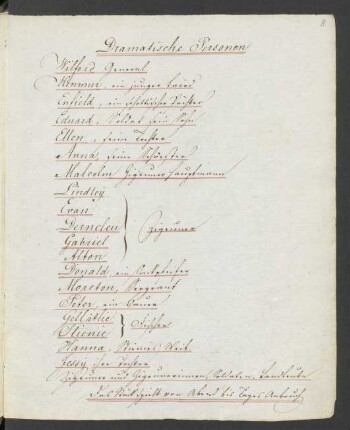 8
Dramatische Personen
Wilford General
Kenmur, ein junger Laird
Enfield, ein schottischer Pächter
Eduard, Soldat sein Sohn
Ellen, seine Tochter
Anna, seine Schwester
Malcolm Zigeunerhauptmann
Lindley
Evan
Derncleu Zigeuner
Gabriel
Alton
Donald, ein
Moreton, Sergeant
Peter, ein Bauer
Gellatlie
Stienie Fischer
Hanna, Stienies Weib
Jessy, ihre Tochter
Zigeuner und Zigeunerinnen, Soldaten, Landleute
Das Stück spielt von Abend bis Tages Anbruch